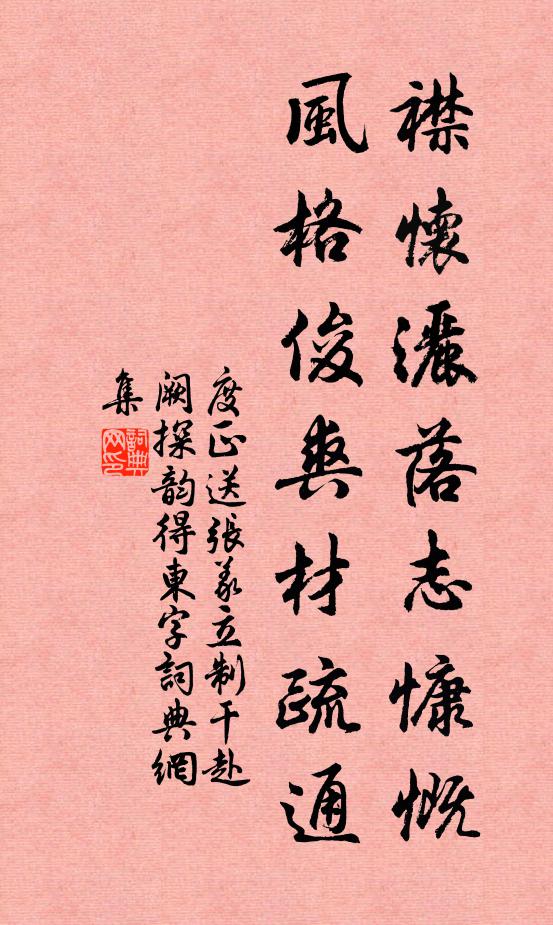 襟懷灑落志慷慨
風格俊爽材疏通
度正送張義立制干赴
闕探韵得東字詞典網
集
詞典网印